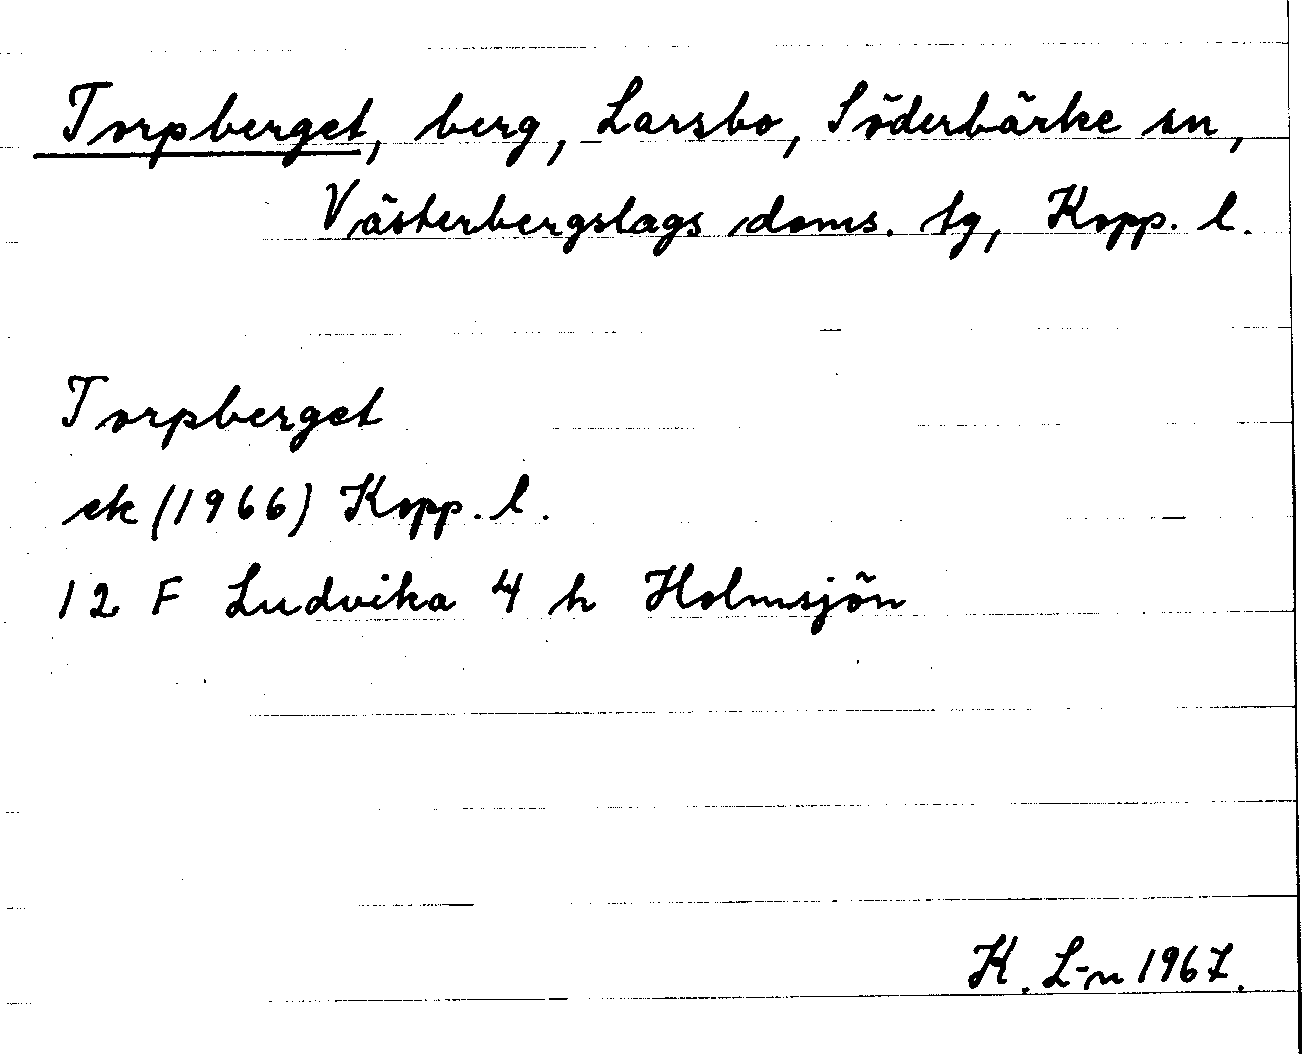 Torpberget, berg, Larsbo, Söderbärke sn,
Västerbergslags doms. tg, Kopp. l.
Torpberget
ek (1966) Kopp. l.
12 F Ludvika 4 h Holmsjön
K. L-n 1967.